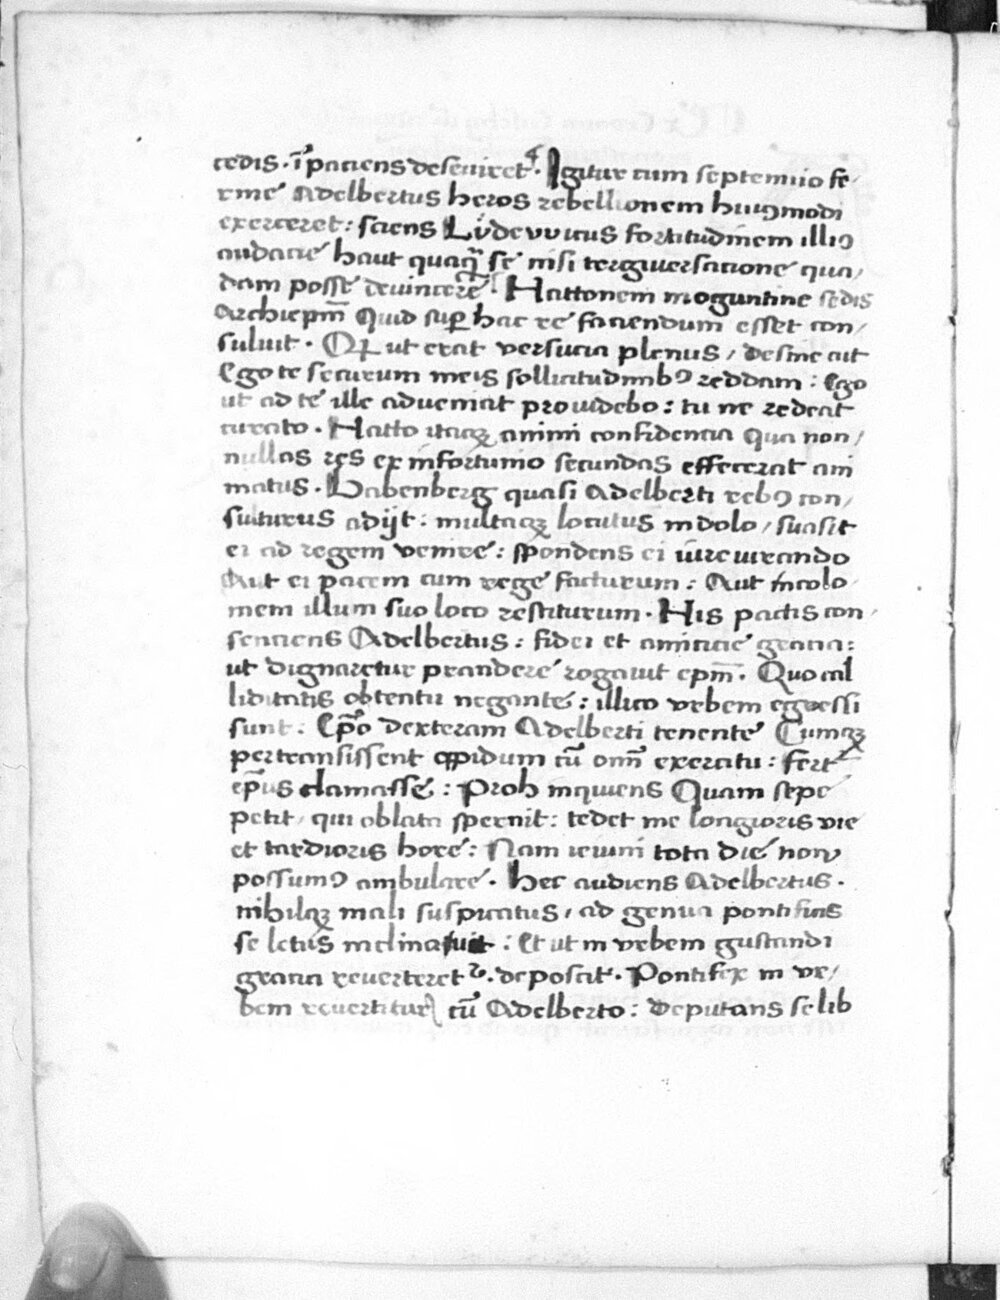 cedis · īpaciens deseuiret · Igitur cum septennio fe
rme Adelbertus heros rebellionem huiꝰmodi
exerceret : sciens Lůdevvicus fortitudinem illiꝰ
audacie haut quaqͣ se nisi tergiuersacione qua/
dam posse deuincere · Hattonem moguntine sedis
Archiepm̄ Quid suꝑ hac re faciendum esset con/
suluit · Qui ut erat versucia plenus / desine ait
Ego te securum meis sollicitudinibꝰ reddam : Ego
ut ad te ille adueniat prouidebo : tu ne redeat
curato · Hatto itaqꝫ animi confidencia qua non/
nullas res ex infortunio secundas effecerat ani
matus · Babenberg quasi Adelberti rebꝰ con/
sulturus adijt : multaqꝫ locutus in dolo / suasit
ei ad regem venire : spondens ei iureiurando
Aut ei pacem cum rege facturum : Aut incolo/
mem illum suo loco restiturum · His pactis con/
senciens Adelbertus : fidei et amicicie gracia :
ut dignaretur prandere rogauit epm̄ · Quo cal
liditatis obtentu negante : illico vrbem egressi
sunt : Ep̄o dexteram Adelberti tenente Cumqꝫ
pertransissent oppidum cū omī exercitu : fert
ep̄us clamasse : Proh inquiens Quam sepe
petit / qui oblata spernit : tedet me longioris vie
et tardioris hore : Nam ieiuni tota die non
possumꝰ ambulare · hec audiens Adelbertus ·
nihilqꝫ mali suspicatus / ad genua pontificis
se letus inclinauit : Et ut in vrbem gustandi
gracia reuerteret᷑ · deposcit · Pontifex in vr/
bem reuertitur cū Adelberto : deputans se lib